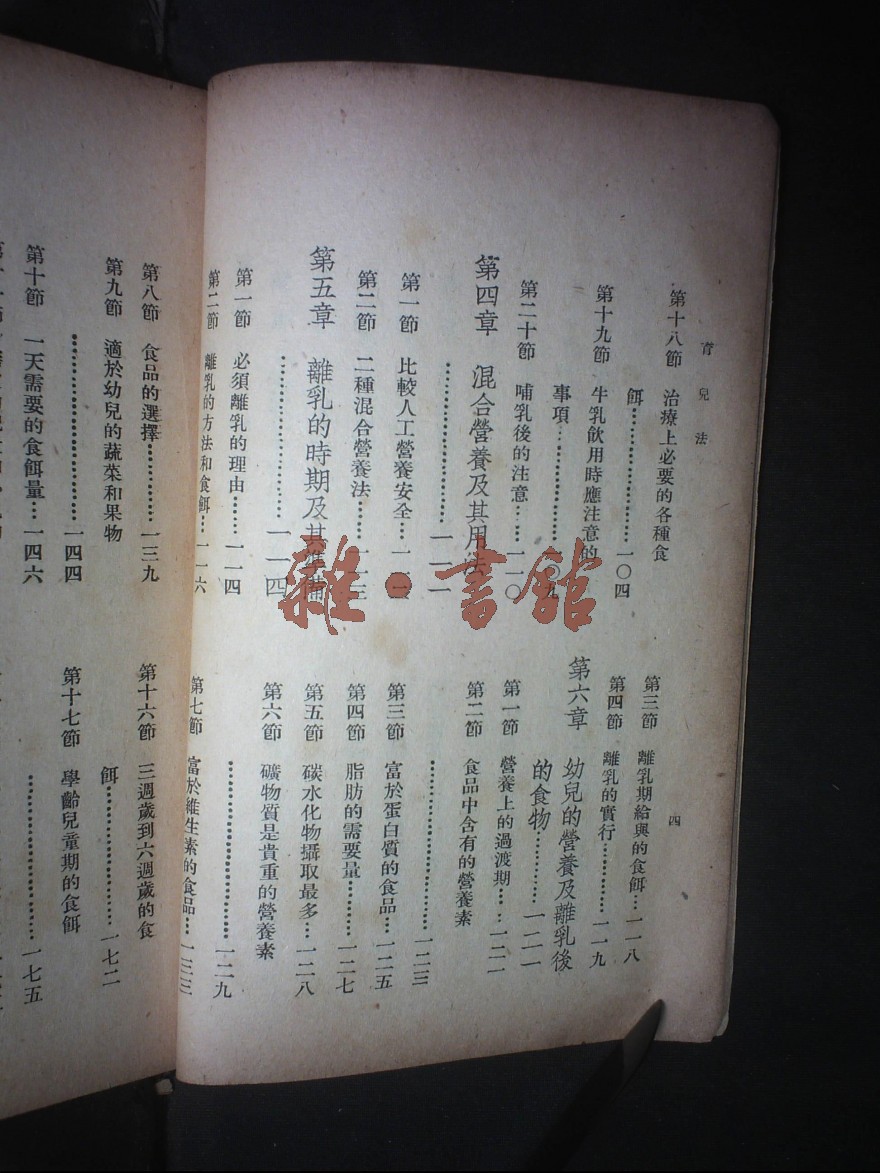 育兒法
第十八節 治療上必要的各種食
餌………………一〇四
第十九節 牛乳飲用時應注意的
事項……………一〇九
第二十節 哺乳後的注意……一一〇
第四章 混合營養及其用法
………………一一一
第一節 比較人工營養安全…一一一
第二節 二種混合營養法……一一三
第五章 離乳的時期及其準備
………………一一四
第一節 必須離乳的理由……一一四
第二節 離乳的方法和食餌…一一六
第三節 離乳期給與的食餌…一一八
第四節 離乳的實行…………一一九
第六章 幼兒的營養及離乳後
的食物…………一二一
第一節 營養上的過渡期……一二一
第二節 食品中含有的營養素
………………一二三
第三節 富於蛋白質的食品…一二五
第四節 脂肪的需要量………一二七
第五節 碳水化物攝取最多…一二八
第六節 礦物質是貴重的營養素
………………一二九
第七節 富於維生素的食品…一三三
四
第八節 食品的選擇…………一三九
第九節 適於幼兒的蔬菜和果物
………………一四四
第十節 一天需要的食餌量…一四六
第十六節 三週歲到六週歲的食
餌………………一七二
第十七節 學齡兒童期的食餌
………………一七五
雜·書館